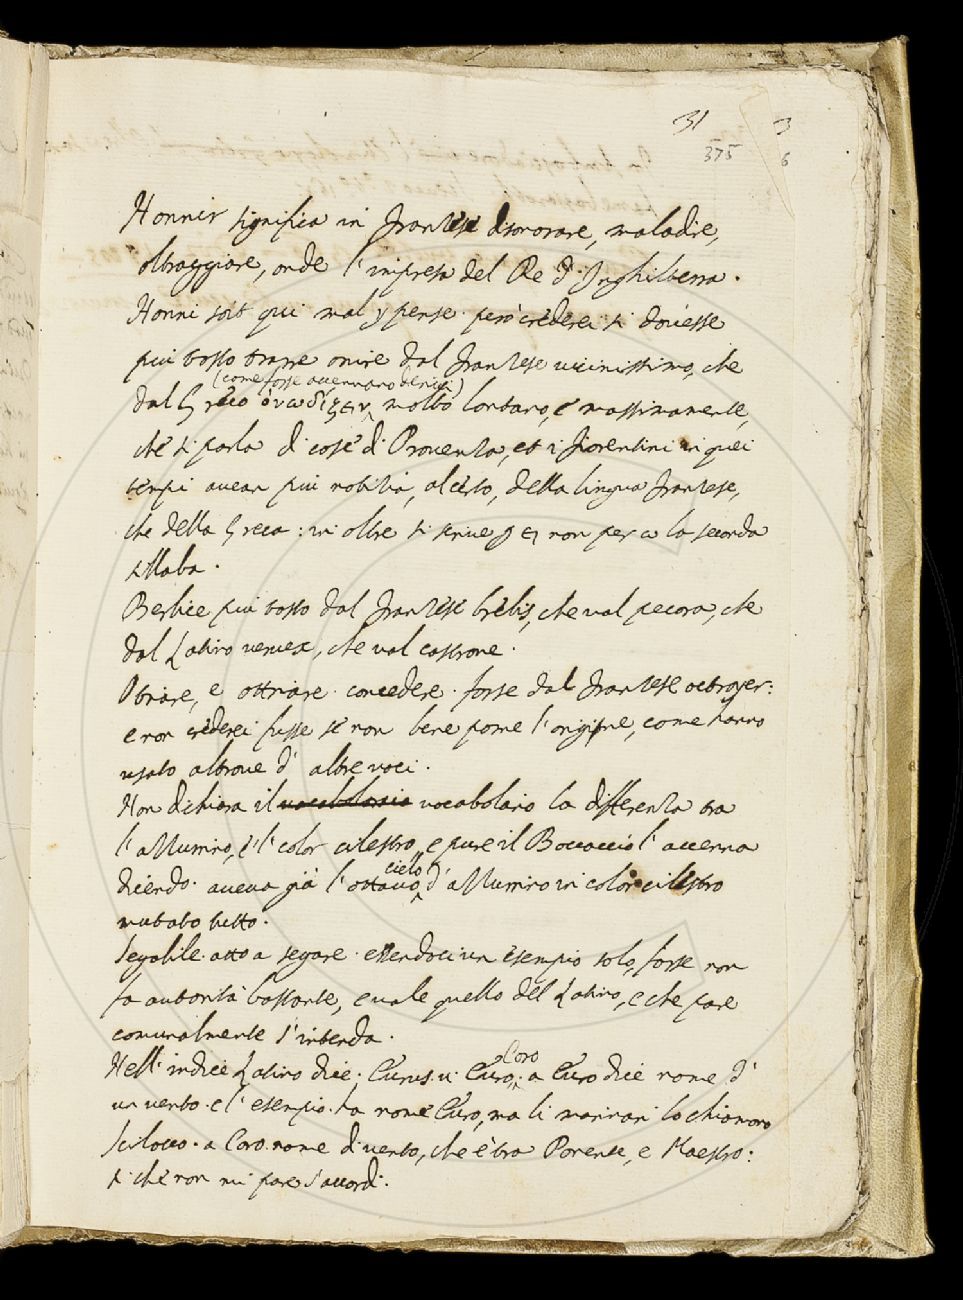 31 3
375 6
Honnir significa in franzese disonorare, maladire,
oltraggiare, onde l'impresa del Re d'Inghilterra.
Honni soit qui mal y pense. però crederei si dovesse
più tosto trarre onire dal franzese vicinissimo, che
(come forse accennano i Greci)
dal Greco ὀνειδίζειν molto lontano, e massimamente,
chè si parla di cose di Provenza, et i fiorentini in quei
tempi avean più notitia, al certo, della lingua franzese,
che della Greca: in oltre si scrive p ει non per ω la seconda
sillaba.
Berbice più tosto dal franzese brebis, che val pecora, che
dal Latino vervex, che val castrone.
Otriare, e ottriare. concedere. forse dal franzese octroyer:
e non crederei fusse se non bene porne l'origine, come hanno
usato altrove d'altre voci.
Non dichiara il vocabolario vocabolario la differenza tra
l'allumino, e'l color cilestro, e pure il Boccaccio l'accenna
cielo
dicendo. aveva già l'ottavo d'allumino in color cilestro
mutato tutto.
Segabile. atto a segare. essendoci un esempio solo, forse non
fa autorità bastante, e vale quello del Latino, e che pare
comunalmente s'intenda.
Coro
Nell'indice Latino dice. Curus. v. Curo. a Curo dice nome d'
un vento. e l'esempio. ha nome Curo, ma li marinari lo chiamaro
Scilocco. a Coro. nome di vento, che è tra Ponente, e Maestro:
si chè non mi pare s'accordi.